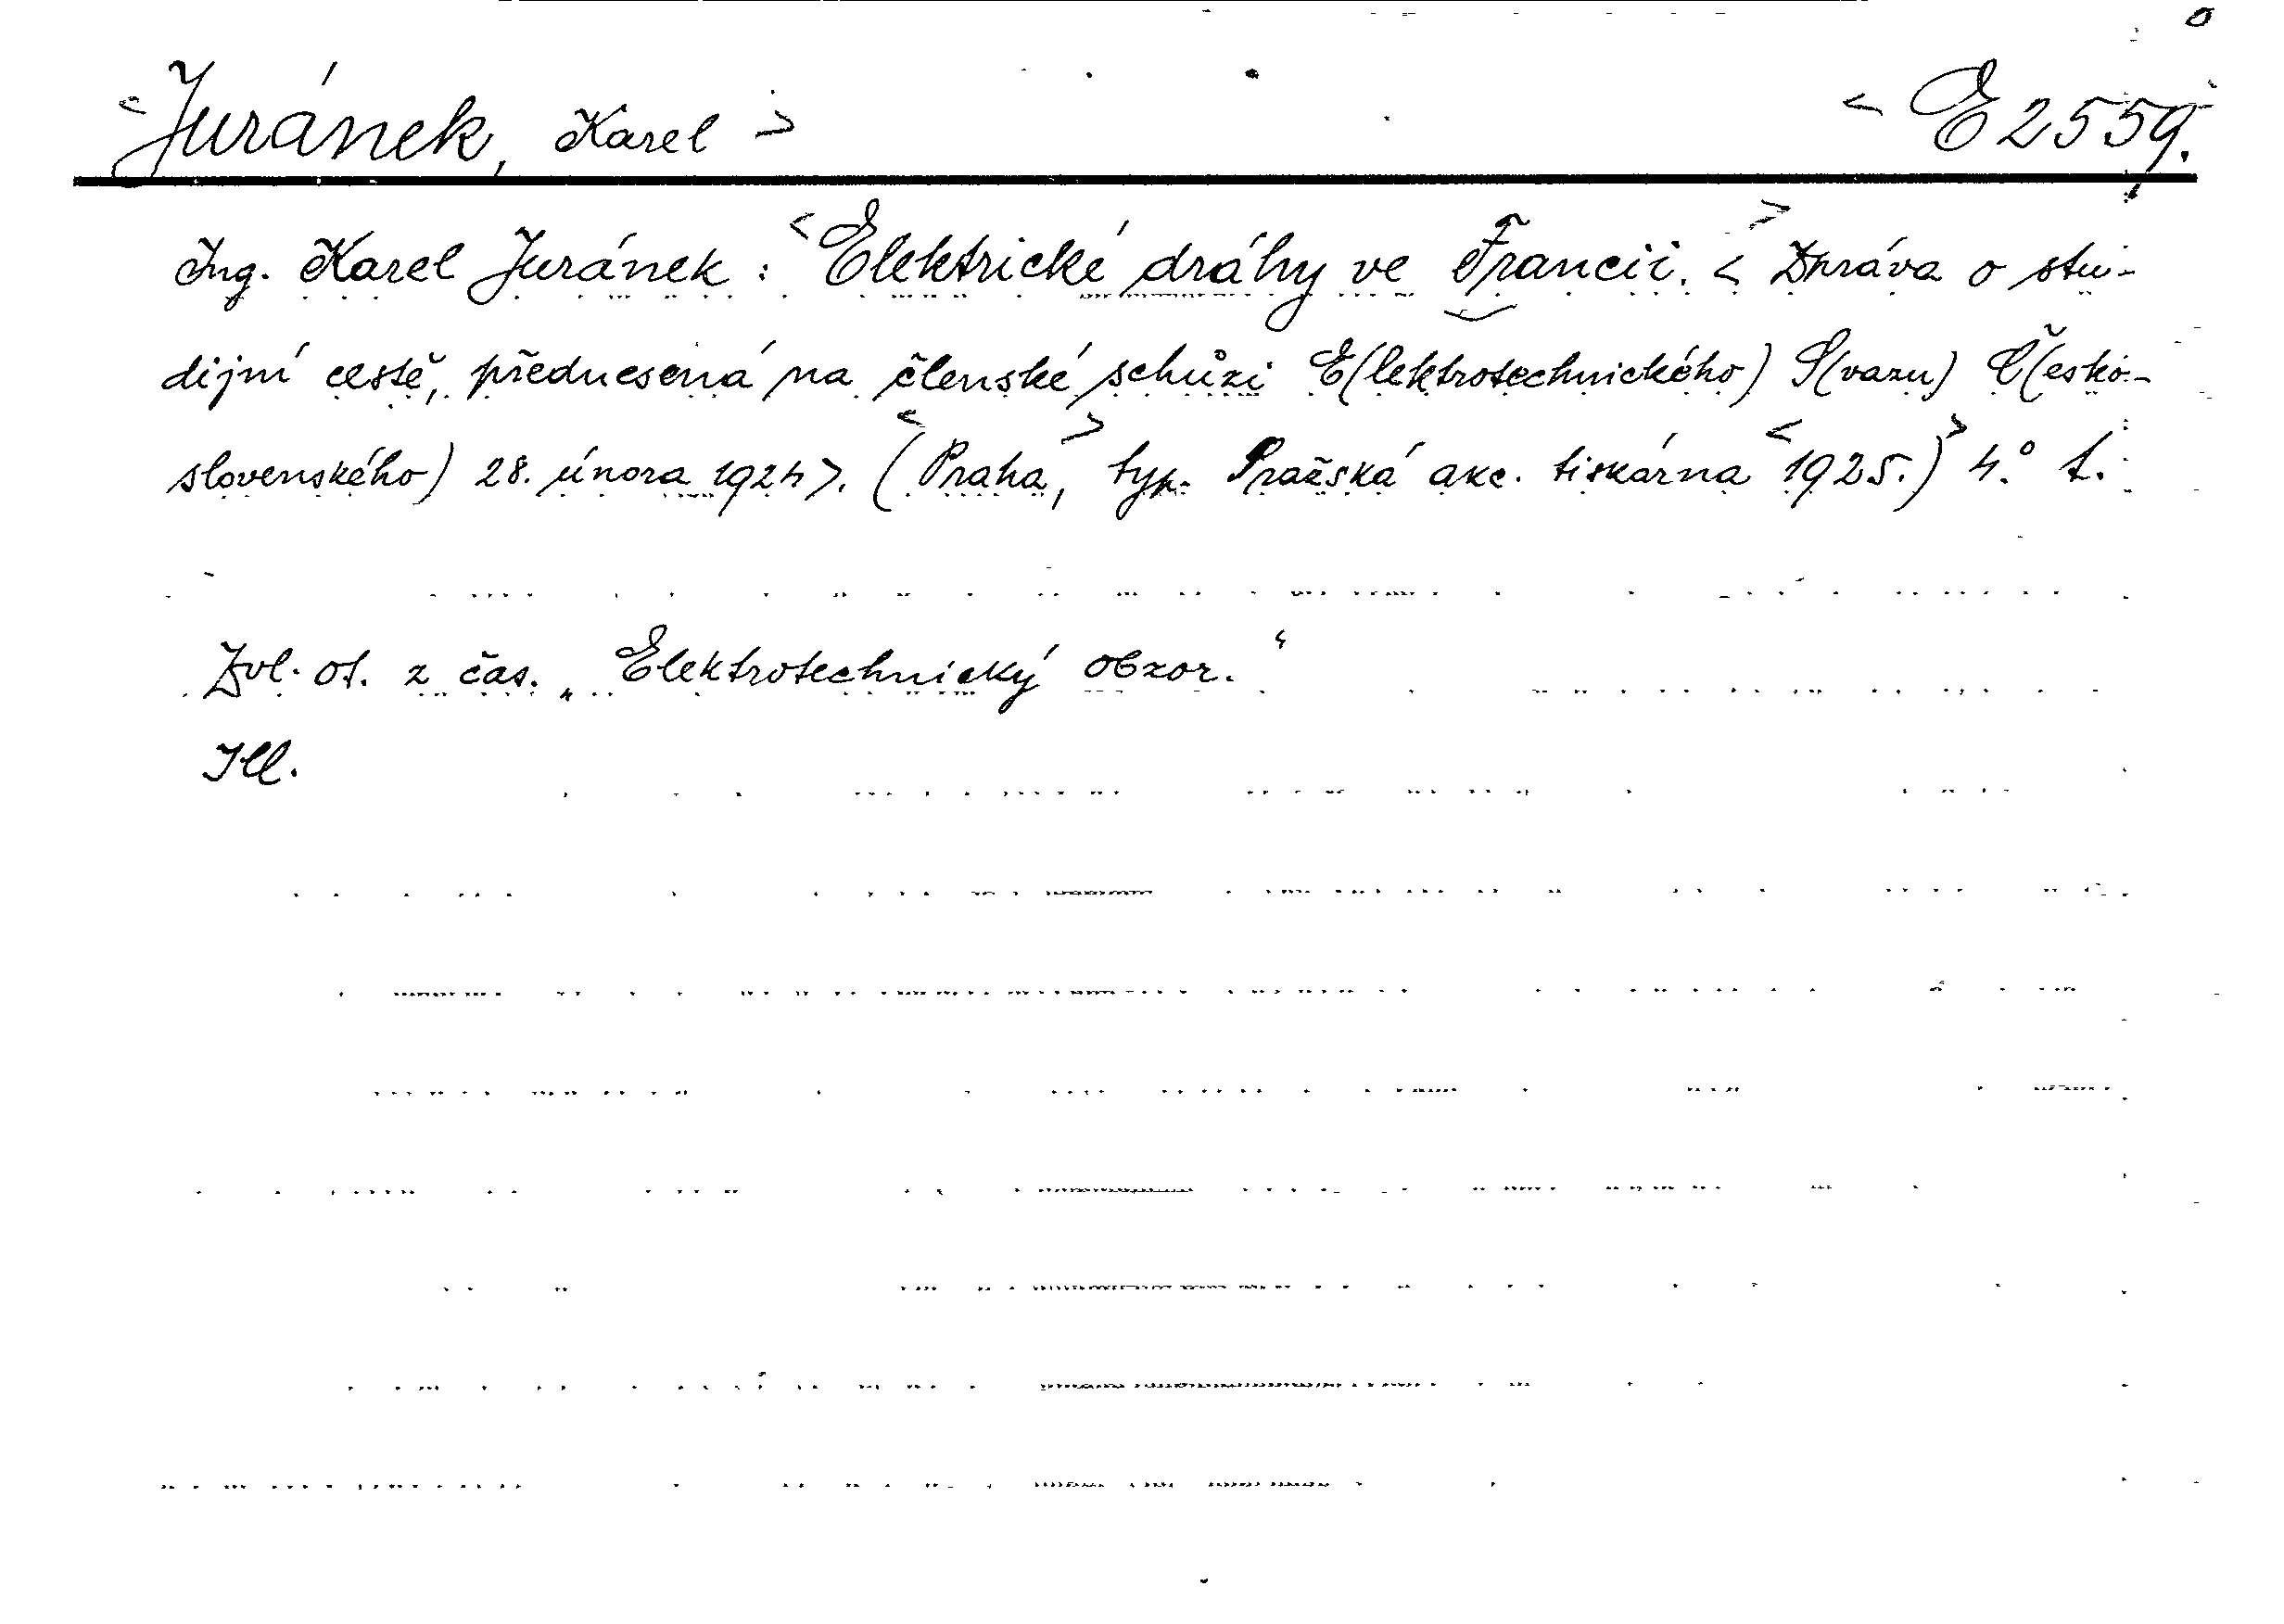 <Juránek, Karel> <E 2559.
Ing. Karel Juránek: <Elektrické dráhy ve Francii.> <Zpráva o stu-
dijní cestě, přednesená na členské schůzi E(lektrotechnického) S(vazu) Č(esko-
slovenského) 28. února 1924>. (<Praha>, typ. Pražská akc. tiskárna <1925.)> 4.° 1.
Zvl. ot. z čas. „Elektrotechnický obzor.“
Ill.